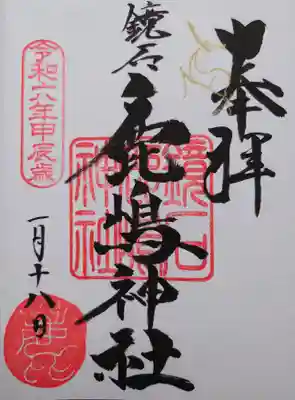 奉拝
鏡石
鹿嶋神社
鏡石鹿嶋神社
令和六年甲辰歳
一月十八日